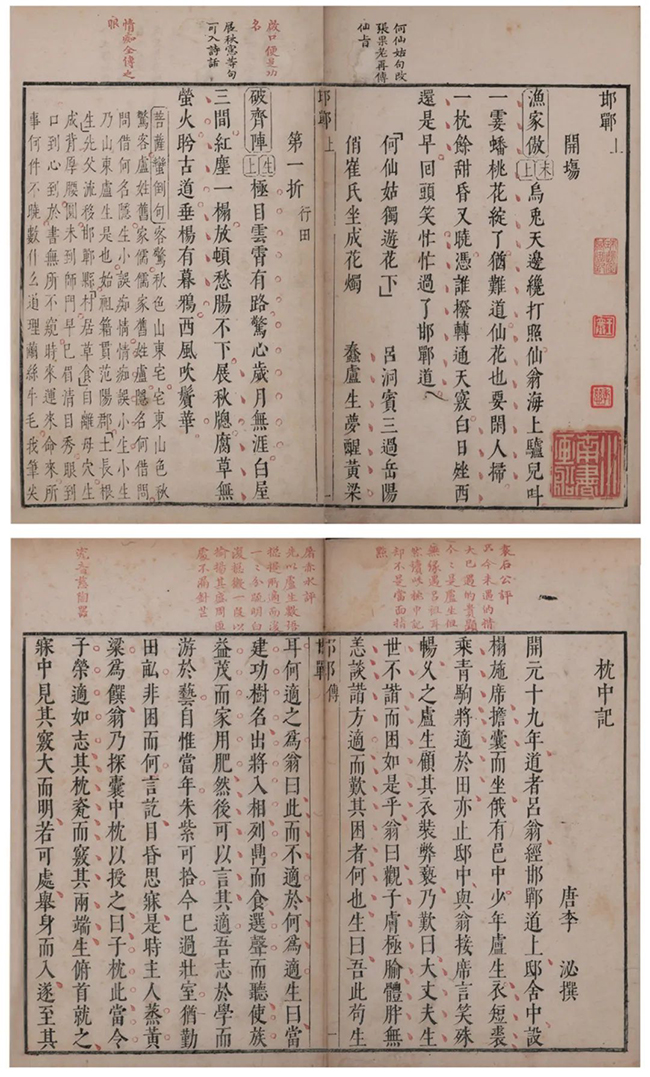 何仙姑句改
張果老再傳
仙旨
展秋窓等句
可入詩話
啟口便見功
名
情痴全傳之
眼
邯鄲上
開塲
漁家傲 末上 烏兎天邊纔打照仙翁海上驢兒呌
一霎蟠桃花綻了猶難道仙花也要閑人掃
一枕餘甜昏又曉憑誰撥轉通天竅白日矬西
還是早回頭笑忙忙過了邯鄲道
何仙姑獨遊花下 呂洞賓三過岳陽
俏崔氏坐成花燭 蠢盧生夢醒黃粱
邯鄲上
第一折 行田
破齊陣 生上 極目雲霄有路驚心歲月無涯白屋
三間紅塵一榻放頓愁腸不下展秋牕腐草無
螢火盻古道垂楊有暮鴉西風吹鬢華
菩薩蠻倒句 客驚秋色山東宅宅東山色秋
驚客盧姓舊家儒儒家舊姓盧隱名何借問
問借何名隱生小誤痴情情痴誤小生小生
乃山東盧生是也始祖籍貫范陽郡土長根
生先父流移邯鄲縣村居草食自離母穴生
成背厚腰圓未到師門早已眉清目秀眼到
口到心到於書無所不窺時來運來命來所
事何件不曉數什么道理繭絲牛毛我筆尖
袁石公評
枕中記
唐李泌撰
開元十九年道者呂翁經邯鄲道上邸舍中設
榻施席擔囊而坐俄有邑中少年盧生衣短裘
乘青駒將適於田亦止邸中與翁接席言笑殊
暢久之盧生顧其衣裝弊褻乃歎曰大丈夫生
世不諧而困如是乎翁曰觀子膚極腧體胖無
恙談諧方適而歎其困者何也生曰吾此苟生
邯鄲傳
耳何適之爲翁曰此而不適於何爲適生曰當
建功樹名出將入相列鼎而食選聲而聽使族
益茂而家用肥然後可以言其適吾志於學而
游於藝自惟當年朱紫可拾今已過壯室猶勤
田畝非困而何言訖目昏思寐是時主人蒸黃
粱爲饌翁乃探囊中枕以授之曰子枕此當令
子榮適如志其枕瓷而竅其兩端生俯首就之
寐中見其竅大而明若可處舉身而入遂至其